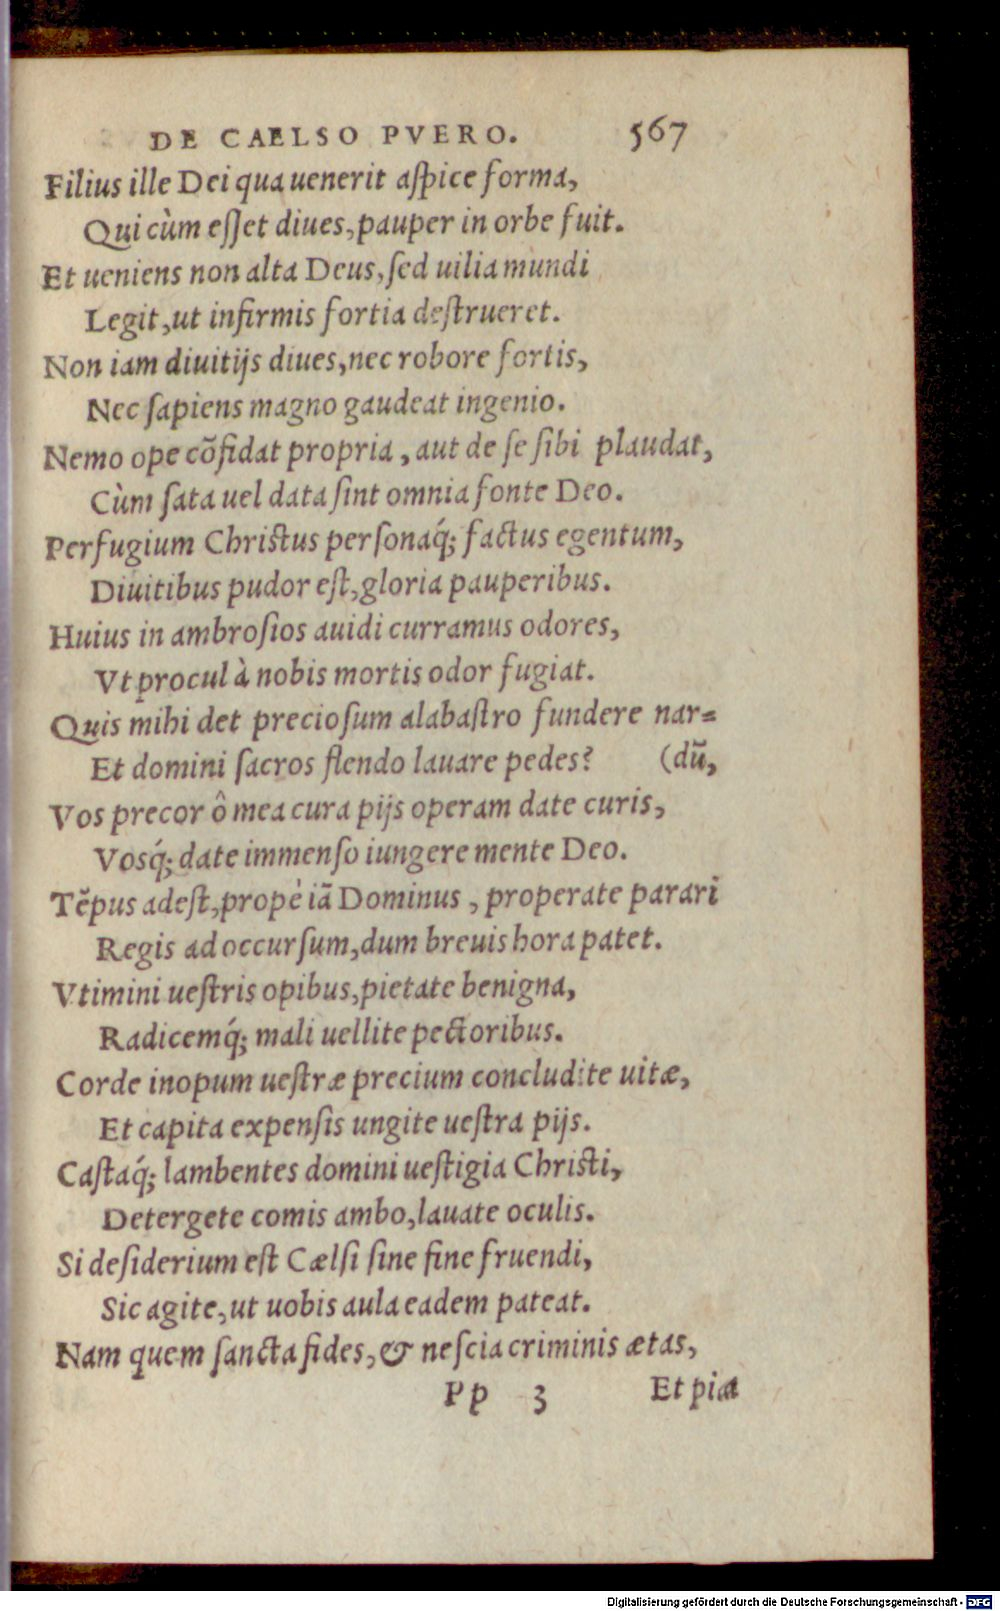 DE CAELSO PVERO. 567
Filius ille Dei qua uenerit aſpice forma,
Qui cùm eſſet diues, pauper in orbe fuit.
Et ueniens non alta Deus, ſed uilia mundi
Legit, ut infirmis fortia deſtrueret.
Non iam diuitijs diues, nec robore fortis,
Nec ſapiens magno gaudeat ingenio.
Nemo ope cõfidat propria, aut de ſe ſibi plaudat,
Cùm ſata uel data ſint omnia fonte Deo.
Perfugium Chriſtus perſonaq́; factus egentum,
Diuitibus pudor eſt, gloria pauperibus.
Huius in ambroſios auidi curramus odores,
Vt procul à nobis mortis odor fugiat.
Quis mihi det precioſum alabaſtro fundere nar=
Et domini ſacros flendo lauare pedes? (dũ,
Vos precor ô mea cura pijs operam date curis,
Vosq́; date immenſo iungere mente Deo.
Tẽpus adeſt, propè iã Dominus, properate parari
Regis ad occurſum, dum breuis hora patet.
Vtimini ueſtris opibus, pietate benigna,
Radicemq́; mali uellite pectoribus.
Corde inopum ueſtræ precium concludite uitæ,
Et capita expenſis ungite ueſtra pijs.
Caſtaq́; lambentes domini ueſtigia Chriſti,
Detergete comis ambo, lauate oculis.
Si deſiderium eſt Cælſi ſine fine fruendi,
Sic agite, ut uobis aula eadem pateat.
Nam quem ſancta fides, & neſcia criminis ætas,
Pp 3 Et pia
Digitalisierung gefördert durch die Deutsche Forschungsgemeinschaft - DFG